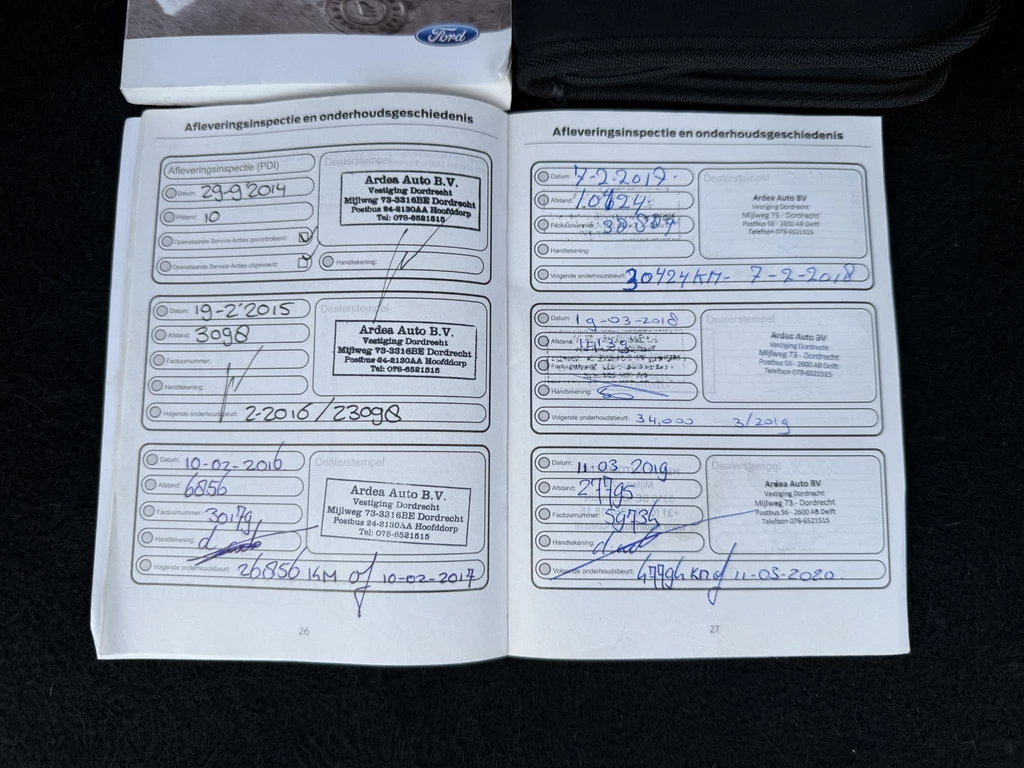 Ford
Afleveringsinspectie en onderhoudsgeschiedenis
Afleveringsinspectie (PDI)
Datum: 29-9'2014
Afstand: 10
Openstaande Service-Acties gecontroleerd:
Openstaande Service-Acties uitgevoerd:
Dealerstempel
Ardea Auto B.V.
Vestiging Dordrecht
Mijlweg 73-3316BE Dordrecht
Postbus 24-2130AA Hoofddorp
Tel: 078-6521515
Handtekening:
Datum: 19-2'2015
Afstand: 3098
Factuurnummer:
Handtekening:
Volgende onderhoudsbeurt: 2-2016/23098
Dealerstempel
Ardea Auto B.V.
Vestiging Dordrecht
Mijlweg 73-3316BE Dordrecht
Postbus 24-2130AA Hoofddorp
Tel: 078-6521515
Datum: 10-02-2016
Afstand: 6856
Factuurnummer: 30179
Handtekening:
Volgende onderhoudsbeurt: 26856 KM of 10-02-2017
Dealerstempel
Ardea Auto B.V.
Vestiging Dordrecht
Mijlweg 73-3316BE Dordrecht
Postbus 24-2130AA Hoofddorp
Tel: 078-6521515
26
Afleveringsinspectie en onderhoudsgeschiedenis
Datum: 7-2-2017.
Afstand: 10424
Factuurnummer:
Handtekening:
Volgende onderhoudsbeurt: 30424 KM- 7-2-2018
Dealerstempel
Ardea Auto BV
Vestiging Dordrecht
Mijlweg 73 - Dordrecht
Postbus 56 - 2600 AB Delft
Telefoon 078-6521515
Datum: 19-03-2018
Afstand:
Handtekening:
Volgende onderhoudsbeurt: 34,000 3/2019
Dealerstempel
Ardea Auto BV
Vestiging Dordrecht
Mijlweg 73 - Dordrecht
Postbus 56 - 2600 AB Delft
Telefoon 078-6521515
Datum: 11-03-2019
Afstand: 27795
Factuurnummer: 59734
Handtekening:
Volgende onderhoudsbeurt: 47794 KM of 11-03-2020.
Dealerstempel
Ardea Auto BV
Vestiging Dordrecht
Mijlweg 73 - Dordrecht
Postbus 56 - 2600 AB Delft
Telefoon 078-6521515
27